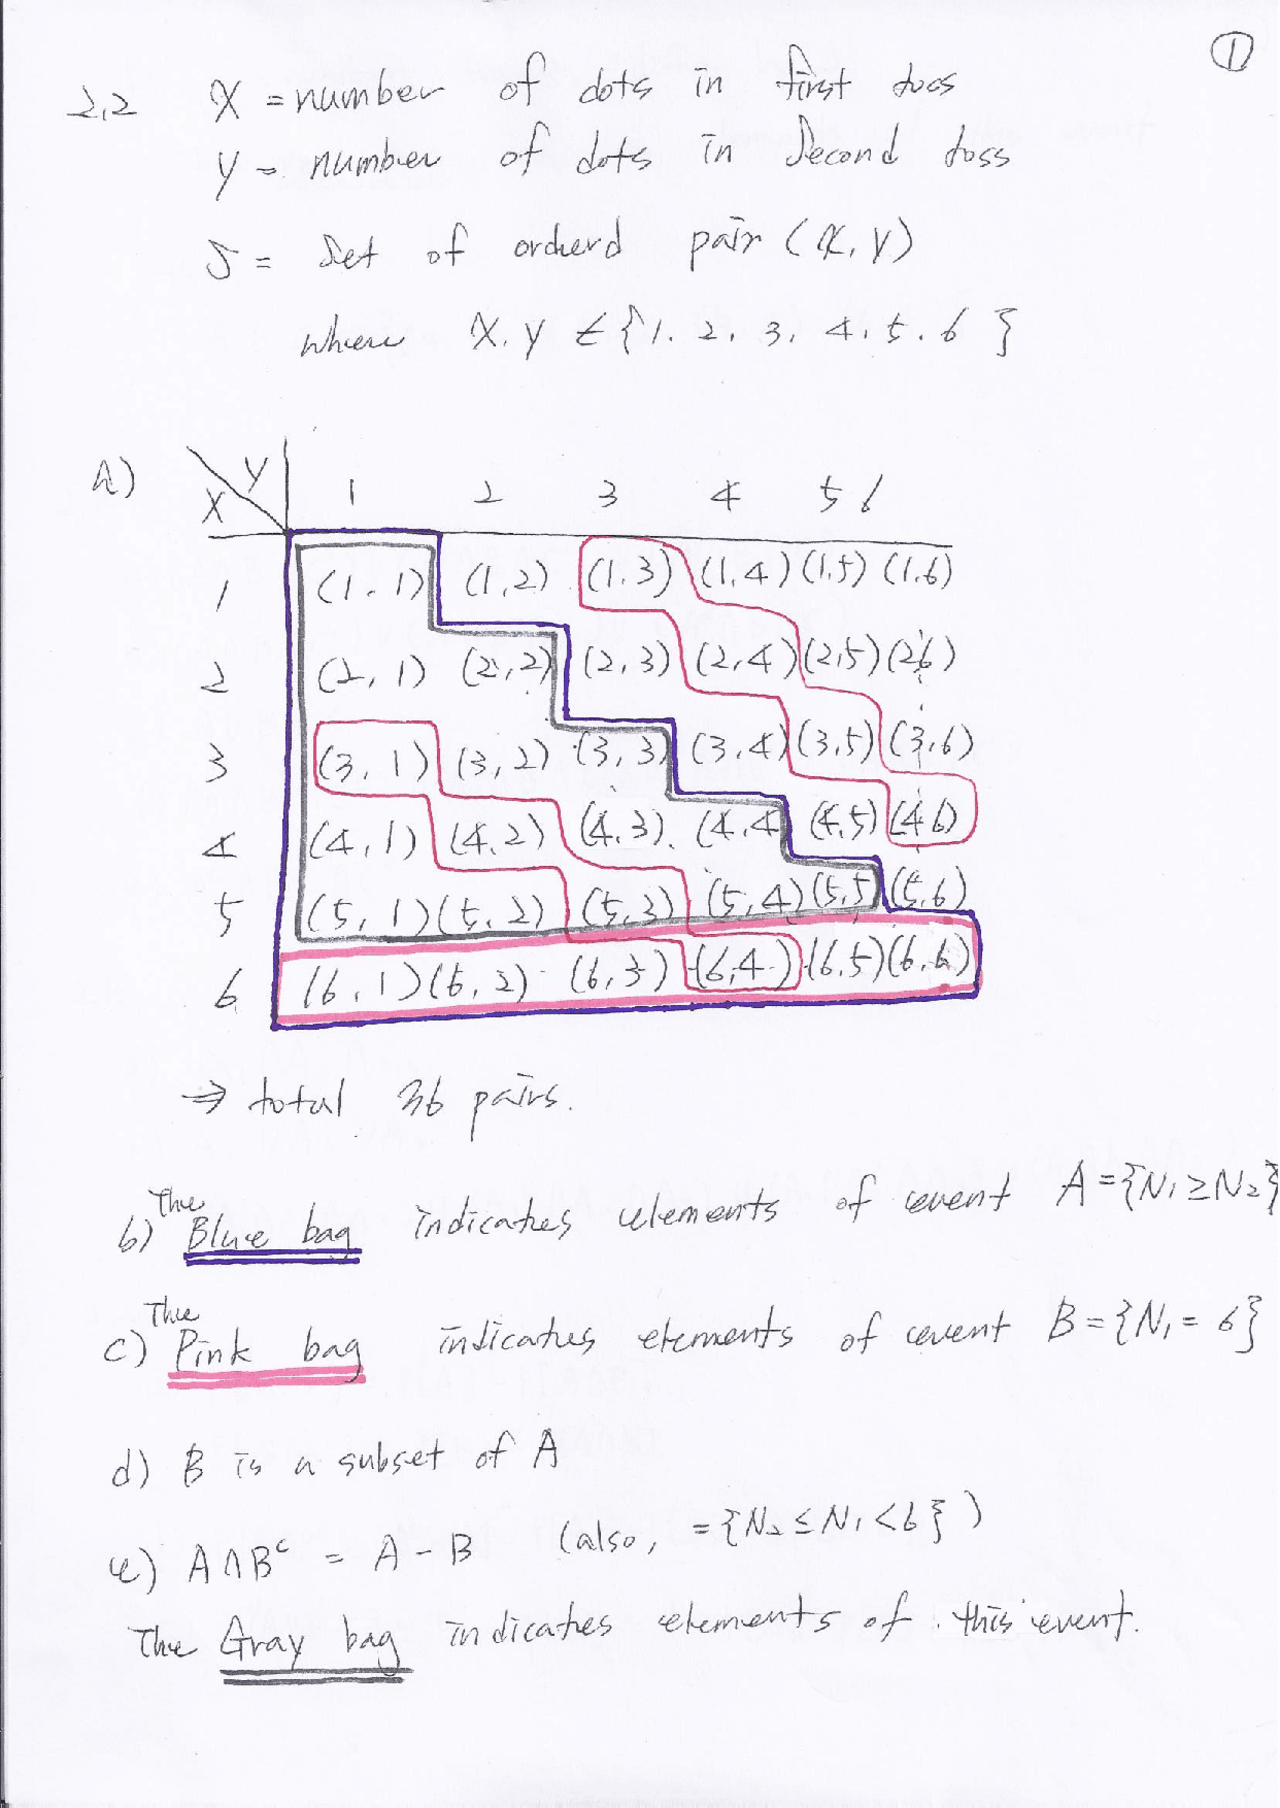 ①
2.2 X = number of dots in first toss
Y = number of dots in second toss
S = Set of orderd pair (X, Y)
where X. Y ∈ {1. 2. 3. 4. 5. 6}
A)
X Y 1 2 3 4 5 6
1 (1.1) (1,2) (1.3) (1,4) (1,5) (1,6)
2 (2,1) (2,2) (2,3) (2,4) (2,5) (2,6)
3 (3,1) (3,2) (3,3) (3,4) (3,5) (3,6)
4 (4,1) (4,2) (4,3) (4,4) (4,5) (4,6)
5 (5,1) (5,2) (5,3) (5,4) (5,5) (5,6)
6 (6,1) (6,2) (6,3) (6,4) (6,5) (6,6)
⇒ total 36 pairs.
b) The Blue bag indicates elements of event A = {N₁ ≥ N₂}
c) The Pink bag indicates elements of event B = {N₁ = 6}
d) B is a subset of A
e) A ∩ Bᶜ = A - B (also, = {N₂ ≤ N₁ < 6})
The Gray bag indicates elements of this event.